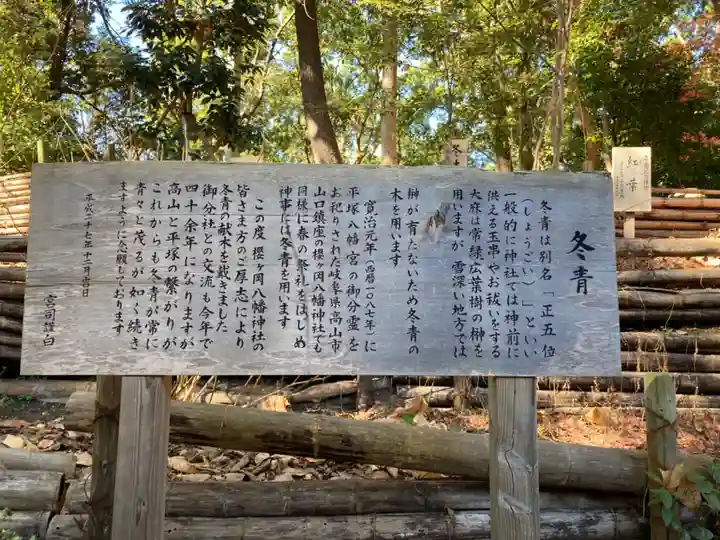 冬青
冬青は別名「正五位
（しょうごい）」といい
一般的に神社では神前に
供える玉串やお祓いをする
大麻は常緑広葉樹の榊を
用いますが 雪深い地方では
榊が育たないため冬青の
木を用います
寛治元年（西暦一〇八七年）に
平塚八幡宮の御分霊を
お祀りされた岐阜県高山市
山口鎮座の櫻ヶ岡八幡神社でも
同様に春の祭礼をはじめ
神事には冬青を用います
この度 櫻ヶ岡八幡神社の
皆さま方のご厚志により
冬青の献木を戴きました
御分社との交流も今年で
四十余年になりますが
高山と平塚の繋がりが
これからも冬青が常に
青々と茂るが如く続き
ますように念願しております
宮司謹白
紅葉
冬